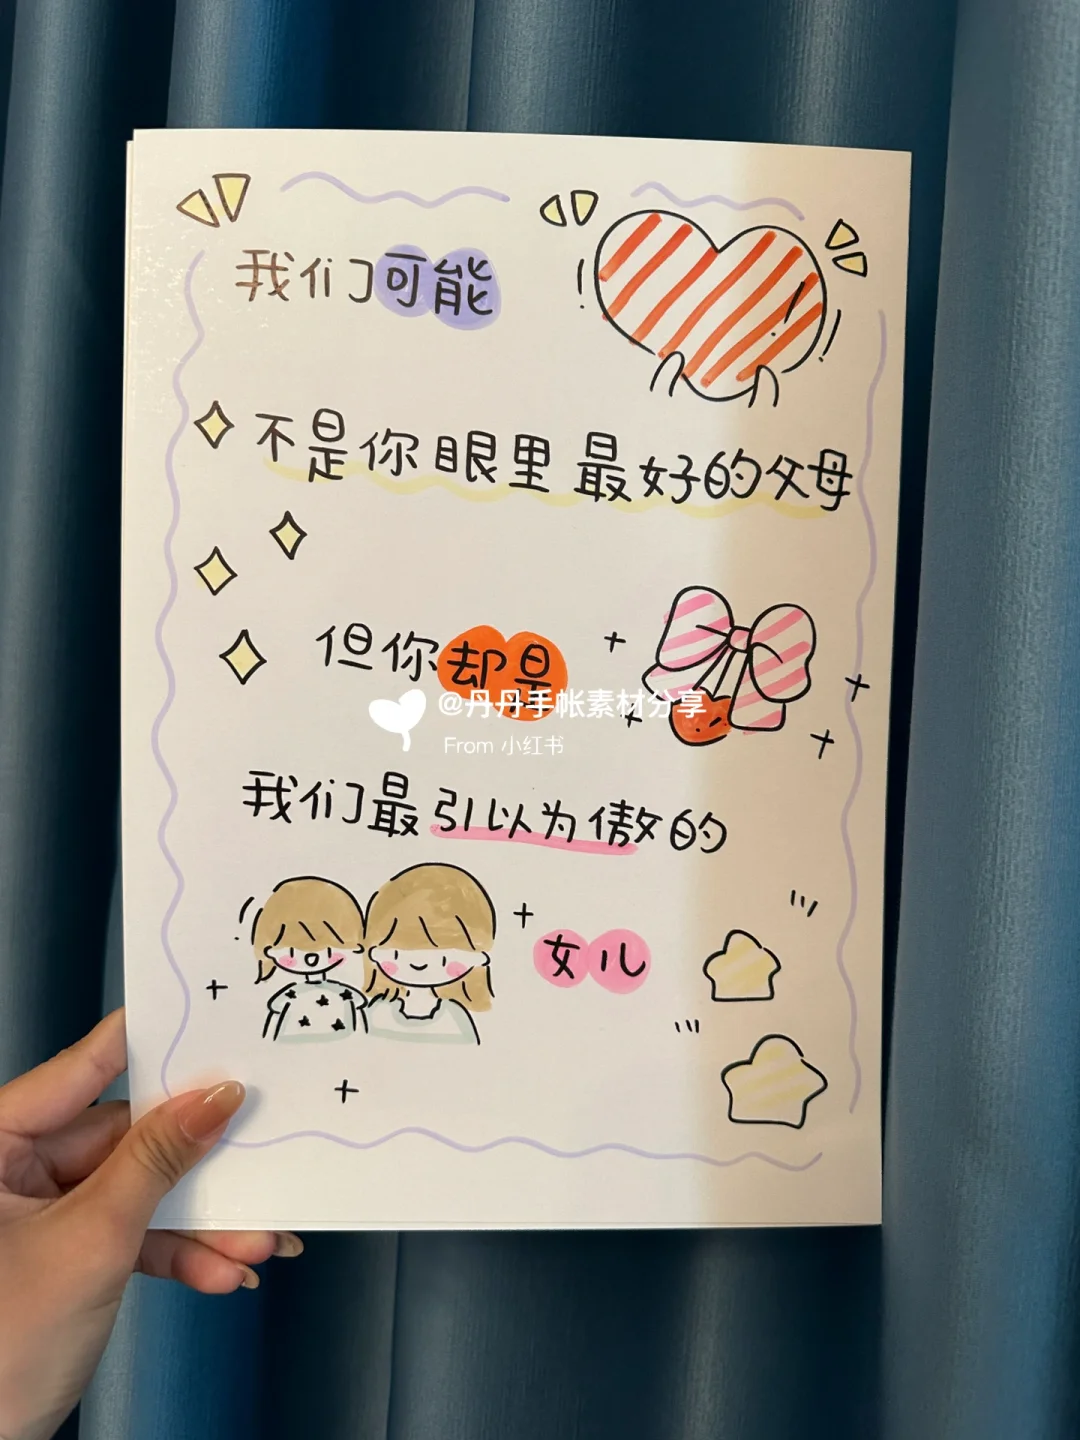 我们可能
不是你眼里最好的父母
但你却是
@丹丹手帐素材分享
From 小红书
我们最引以为傲的
女儿